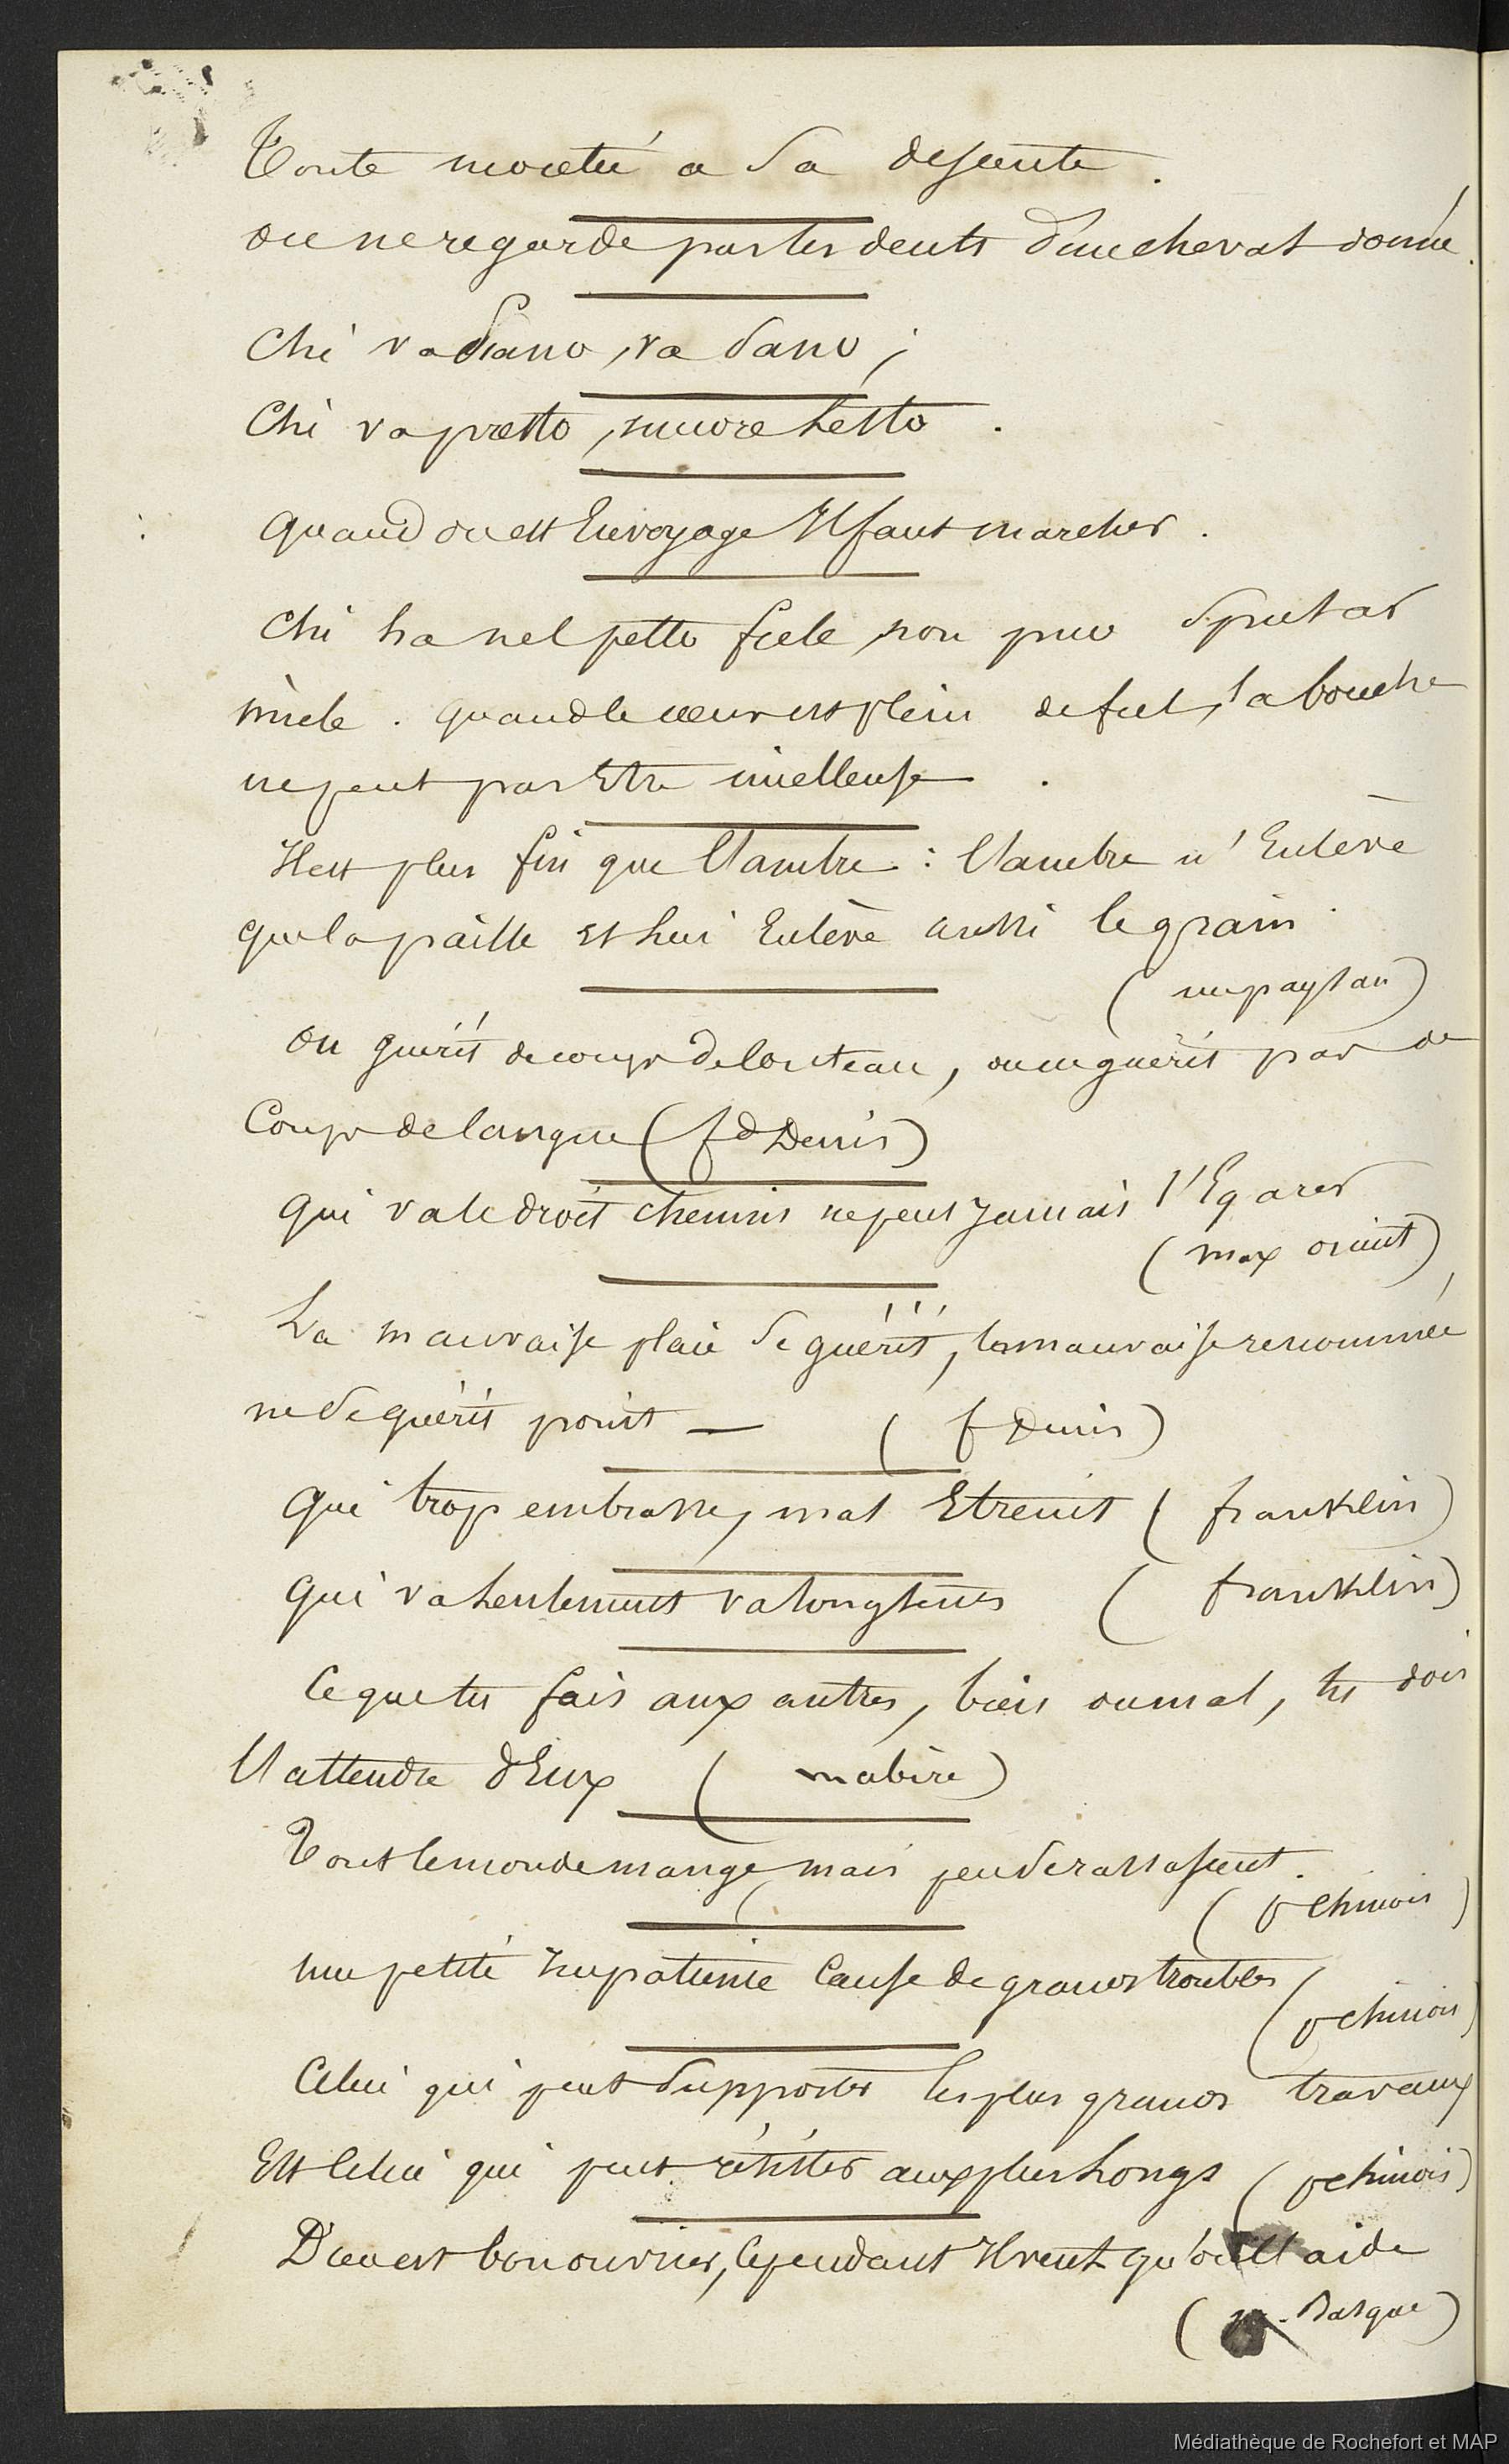 Toute montée a sa descente.
on ne regarde pas les dents d'un cheval donné.
Chi va piano, va sano;
Chi va presto, muore lesto.
quand on est En voyage Il faut marcher.
Chi ha nel petto fiele, non puo sputar
miele. quand le cœur est plein de fiel, la bouche
ne peut pas Etre mielleuse.
Il est plus fin que l'ambre: l'ambre n'Enlève
que la paille et lui Enlève aussi le grain.
(un paysan)
on guérit de coups de couteau, on ne guérit pas de
Coups de langue (fd Denis)
qui va le droit chemin ne peut Jamais s'Egarer
(max orient)
La mauvaise plaie se guérit, la mauvaise renommée
ne se guérit point — (f Denis)
qui trop embrasse, mal Etreint (franklin)
qui va Lentement va longtems (franklin)
Ce que tu fais aux autres, bien ou mal, tu dois
l'attendre d'Eux (mabire)
Tout le monde mange, mais peu se rassasient.
(p chinois)
une petite Impatience Cause de grands troubles
(p chinois)
Celui qui peut supporter les plus grands travaux
Est Celui qui peut résister aux plus Longs (p chinois)
Dieu est bon ouvrier, Cependant Il veut qu'on l'aide
(p. Basque)
Médiathèque de Rochefort et MAP